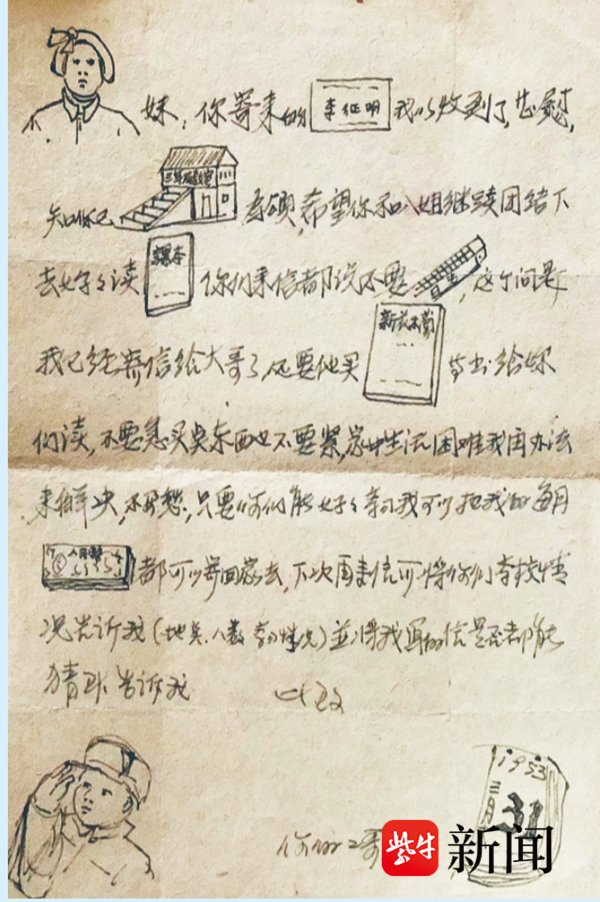 妹:你寄来的 李征明 我以收到了,甚慰,
知你已 希望你和八姐继续团结下
去好々读 課本 你们来信都说不要 ,这个问题
我已经寄信给大哥了,还要他买 等书给你
们读,不要急买 东西也不要紧,家中生活困难我 办法
来解决,不 愁,只要你们能好々学习我可以把我的每月
人民幣 都可以寄回家去,下次再来信可将你们学校情
况告诉我(地点、人数 学习情况)並将我写的信是否都能
猜 告诉我 此致
1953
三月 31
你的二哥
紫牛 新闻